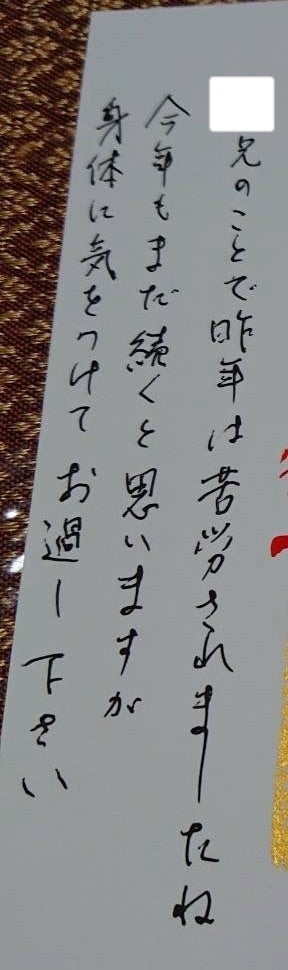 兄のことで昨年は苦労されましたね
今年もまだ続くと思いますが
身体に気をつけてお過し下さい